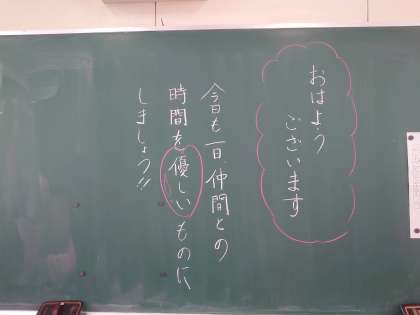 おはよう
ございます
今日も一日、仲間との
時間を優しいものに
しましょう!!